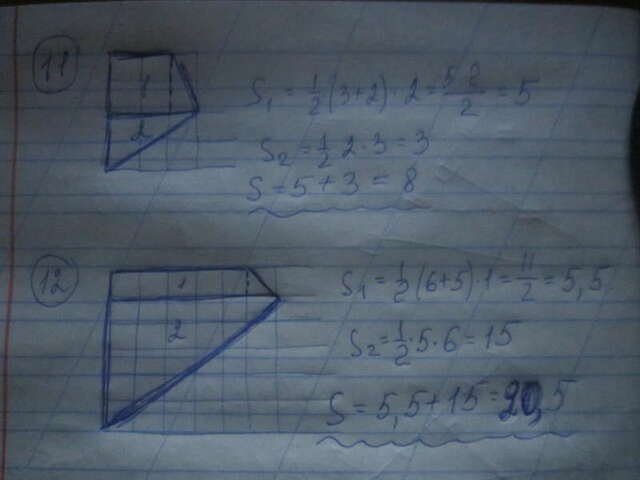 11
1
2
S₁ = 1/2 (3+2) · 2 = 5·2/2 = 5
S₂ = 1/2 · 2 · 3 = 3
S = 5 + 3 = 8
12
1
2
S₁ = 1/2 (6+5) · 1 = 11/2 = 5,5
S₂ = 1/2 · 5 · 6 = 15
S = 5,5 + 15 = 20,5